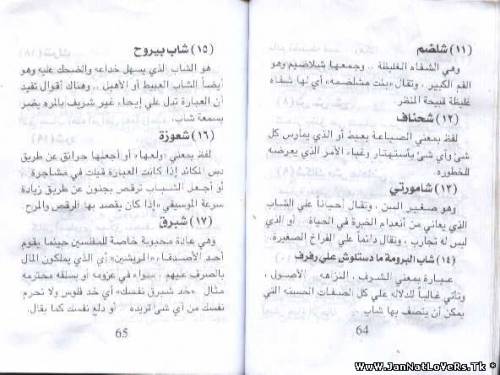 (١١) شلضم
وهي الشفاه الغليظة .. وجمعها شلاضيم وهو
الفم الكبير .. وتقال «بنت مشلضمه» أي لها شفاه
غليظة قبيحة النظر.
(١٢) شحتاف
لفظ بمعني الصياعة بعبط أو الذي يمارس كل
شئ وأي شئ بأستهتار وغباء الأمر الذي يعرضه
للخطوره.
(١٣) شامورتي
وهو صغير السن .. وتقال أحياناً علي الشاب
الذي يعاني من أنعدام الخبرة في الحياة... أو الذي
ليس له تجارب .. وتقال دائماً علي الفراخ الصغيرة..
(١٤) شاب البرومة ما دستلوش علي رفرف
عبارة بمعني الشرف .. النزاهه .. الأصول ..
وتأتي غالباً للدلاله علي كل الصفات الحسنه التي
يمكن أن يتصف بها شاب
64
(١٥) شاب بيروح
هو الشاب الذي يسهل خداعه والضحك عليه وهو
أيضاً الشاب العبيط أو الأهبل .. وهناك أقوال تفيد
أن العبارة تدل علي إيحاء غير شريف بالمره يضر
بسمعة شاب.
(١٦) شعوزة
لفظ بمعني «ولعها» أو أجعلها حرائق عن طريق
دبس المكائد إذا كانت العبارة قيلت في مشاجرة ..
أو أجعل الشباب ترقص بجنون عن طريق زيادة
سرعة الموسيقي «إذا كان يقصد بها الرقص والمرح.
(١٧) شبرق
وهي عادة محبوبة خاصة للمفلسين حينما يقوم
أحد الأصدقاء «المريشين» أي الذي يملكون المال
بالصرف عليهم .. سواء في عزومه أو بسلفه محترمه
مثال «خد شبرق نفسك» أي خد فلوس ولا تحرم
نفسك من أي شئ تريده .. أو دلع نفسك كما يقال.
65
Www.JanNatLoVeRs.Tk *